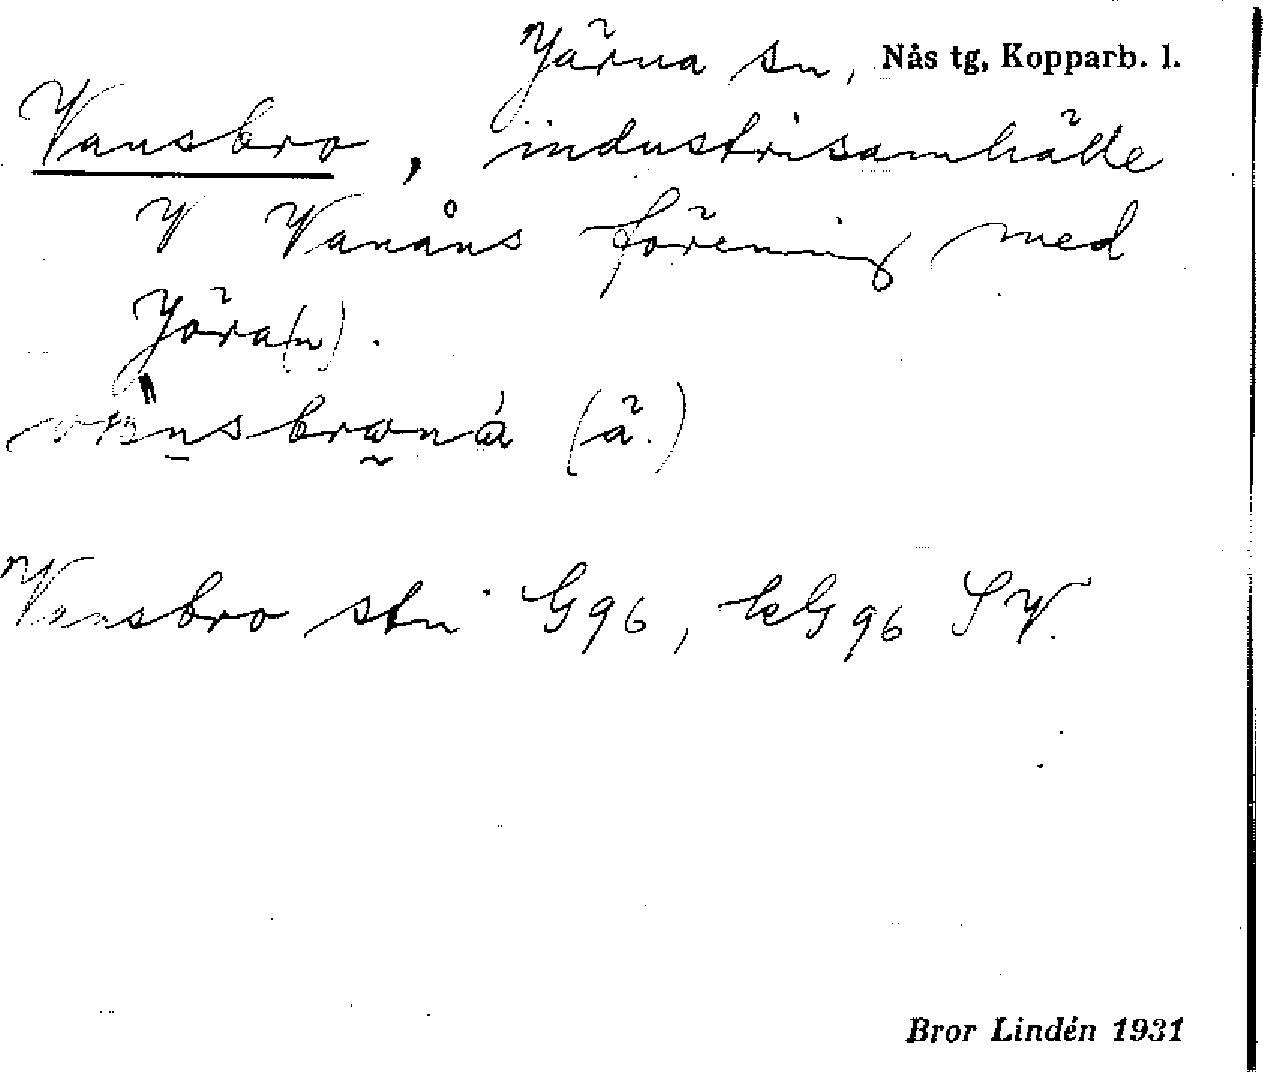 Järna sn, Nås tg, Kopparb. l.
Vansbro, industrisamhälle
V Vanåns förening med
Jöra(n).
(ä.)
Vansbro stn G96, kG96 SV.
Bror Lindén 1931